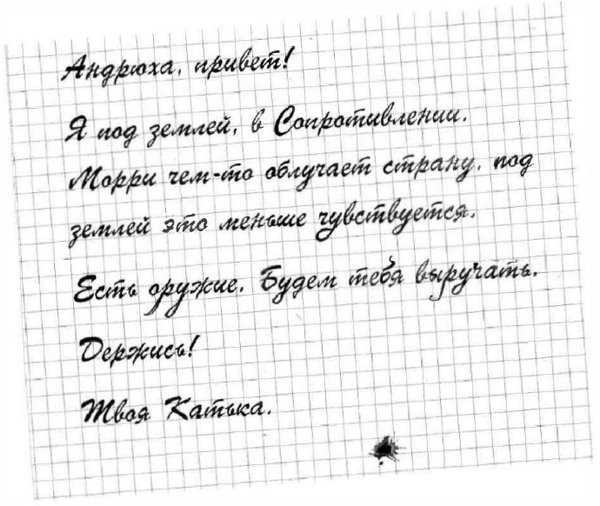 Андрюха, привет!
Я под землей, в Сопротивлении.
Морри чем-то облучает страну, под
землей это меньше чувствуется.
Есть оружие. Будем тебя выручать.
Держись!
Твоя Катька.